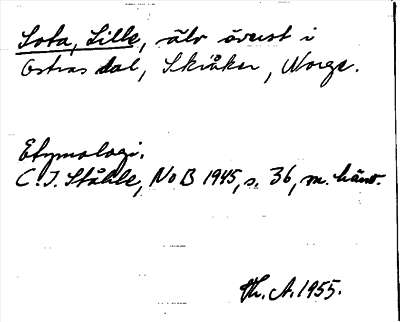 Sota, Lille, älv överst i
Ostras dal, Skråker, Norge.
Etymologi.
C. I. Ståhle, NoB 1945, s. 36, m. hänv.
Th. A. 1955.